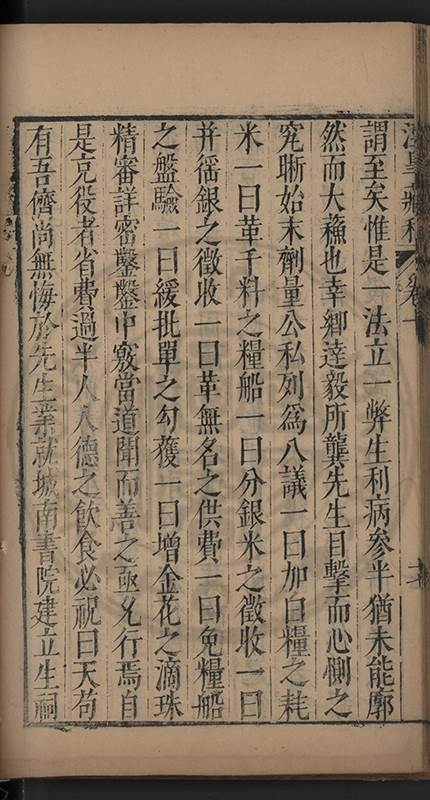 謂至矣惟是一法立一弊生利病參半猶未能廓
然而大蘓也幸鄉達毅所龔先生目擊而心惻之
究晰始末劑量公私列爲八議一曰加白糧之耗
米一曰革千料之糧船一曰分銀米之徵收一曰
并徭銀之徵收一曰革無名之供費一曰免糧船
之盤驗一曰緩批單之勾獲一曰增金花之滴珠
精審詳密鑿鑿中窽當道聞而善之亟允行焉自
是克役者省費過半人人德之飲食必祝曰天苟
有吾儕尚無悔於先生業就城南書院建立生祠